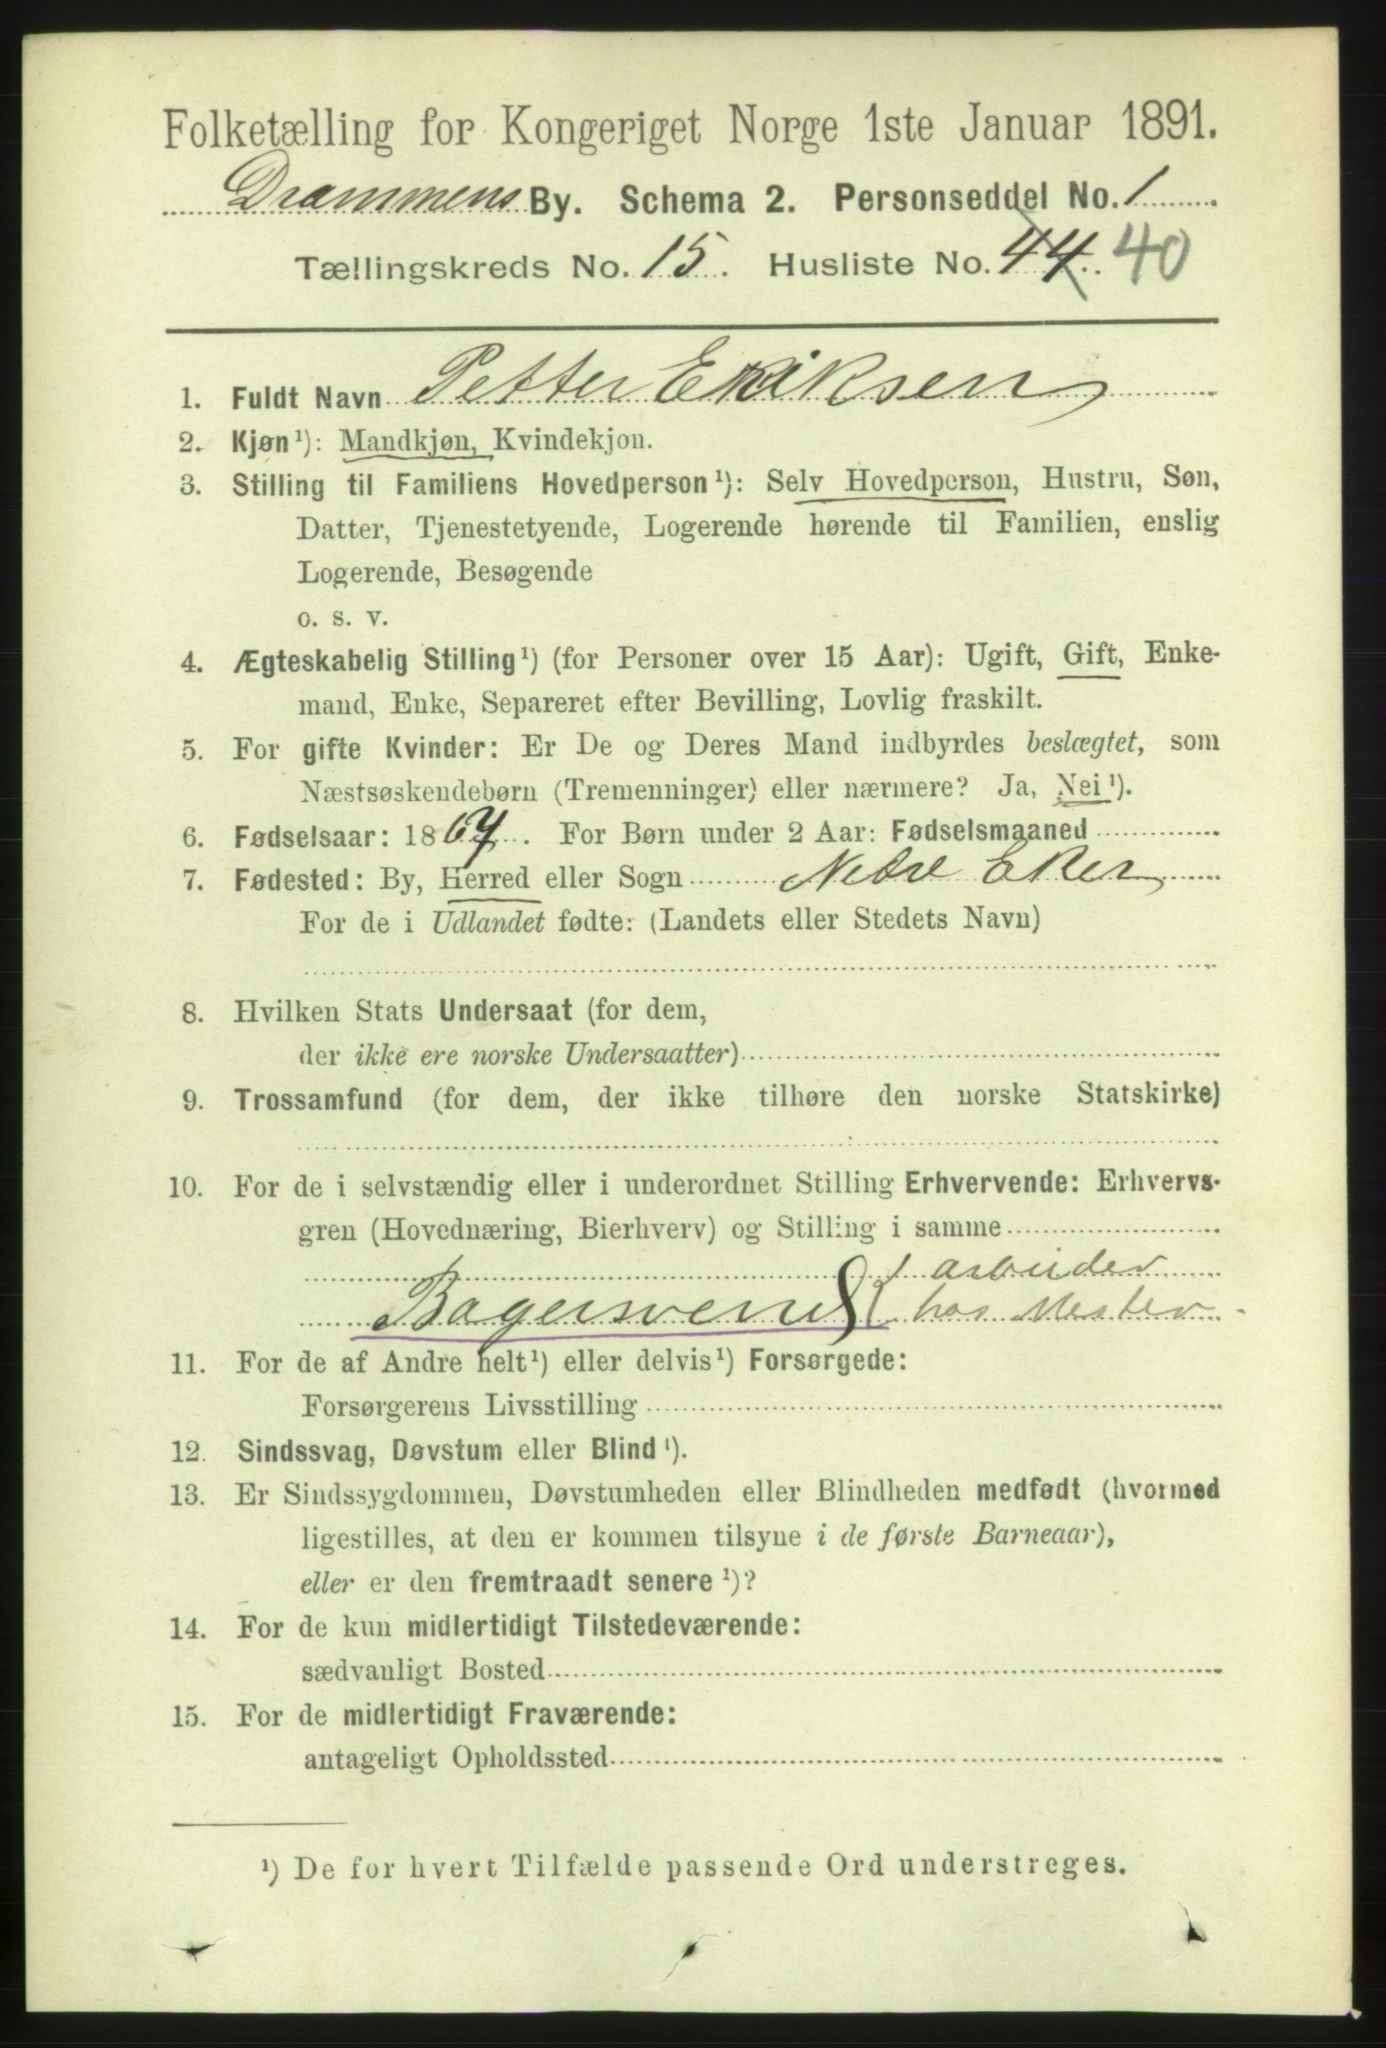 Folketælling for Kongeriget Norge 1ste Januar 1891.
Drammens By. Schema 2. Personseddel No. 1
Tællingskreds No. 15. Husliste No. 44. 40
1. Fuldt Navn Petter Eriksen
2. Kjøn¹): Mandkjøn, Kvindekjøn.
3. Stilling til Familiens Hovedperson¹): Selv Hovedperson, Hustru, Søn,
Datter, Tjenestetyende, Logerende hørende til Familien, enslig
Logerende, Besøgende
o. s. v.
4. Ægteskabelig Stilling¹) (for Personer over 15 Aar): Ugift, Gift, Enke-
mand, Enke, Separeret efter Bevilling, Lovlig fraskilt.
5. For gifte Kvinder: Er De og Deres Mand indbyrdes beslægtet, som
Næstsøskendebørn (Tremenninger) eller nærmere? Ja, Nei¹).
6. Fødselsaar: 1867. For Børn under 2 Aar: Fødselsmaaned
7. Fødested: By, Herred eller Sogn Nedre Eker
For de i Udlandet fødte: (Landets eller Stedets Navn)
8. Hvilken Stats Undersaat (for dem,
der ikke ere norske Undersaatter)
9. Trossamfund (for dem, der ikke tilhøre den norske Statskirke)
10. For de i selvstændig eller i underordnet Stilling Erhvervende: Erhvervs-
gren (Hovednæring, Bierhverv) og Stilling i samme
arbeider
Bagersvend hos Mester
11. For de af Andre helt¹) eller delvis¹) Forsørgede:
Forsørgerens Livsstilling
12. Sindssvag, Døvstum eller Blind¹).
13. Er Sindssygdommen, Døvstumheden eller Blindheden medfødt (hvormed
ligestilles, at den er kommen tilsyne i de første Barneaar),
eller er den fremtraadt senere¹)?
14. For de kun midlertidigt Tilstedeværende:
sædvanligt Bosted
15. For de midlertidigt Fraværende:
antageligt Opholdssted
¹) De for hvert Tilfælde passende Ord understreges.